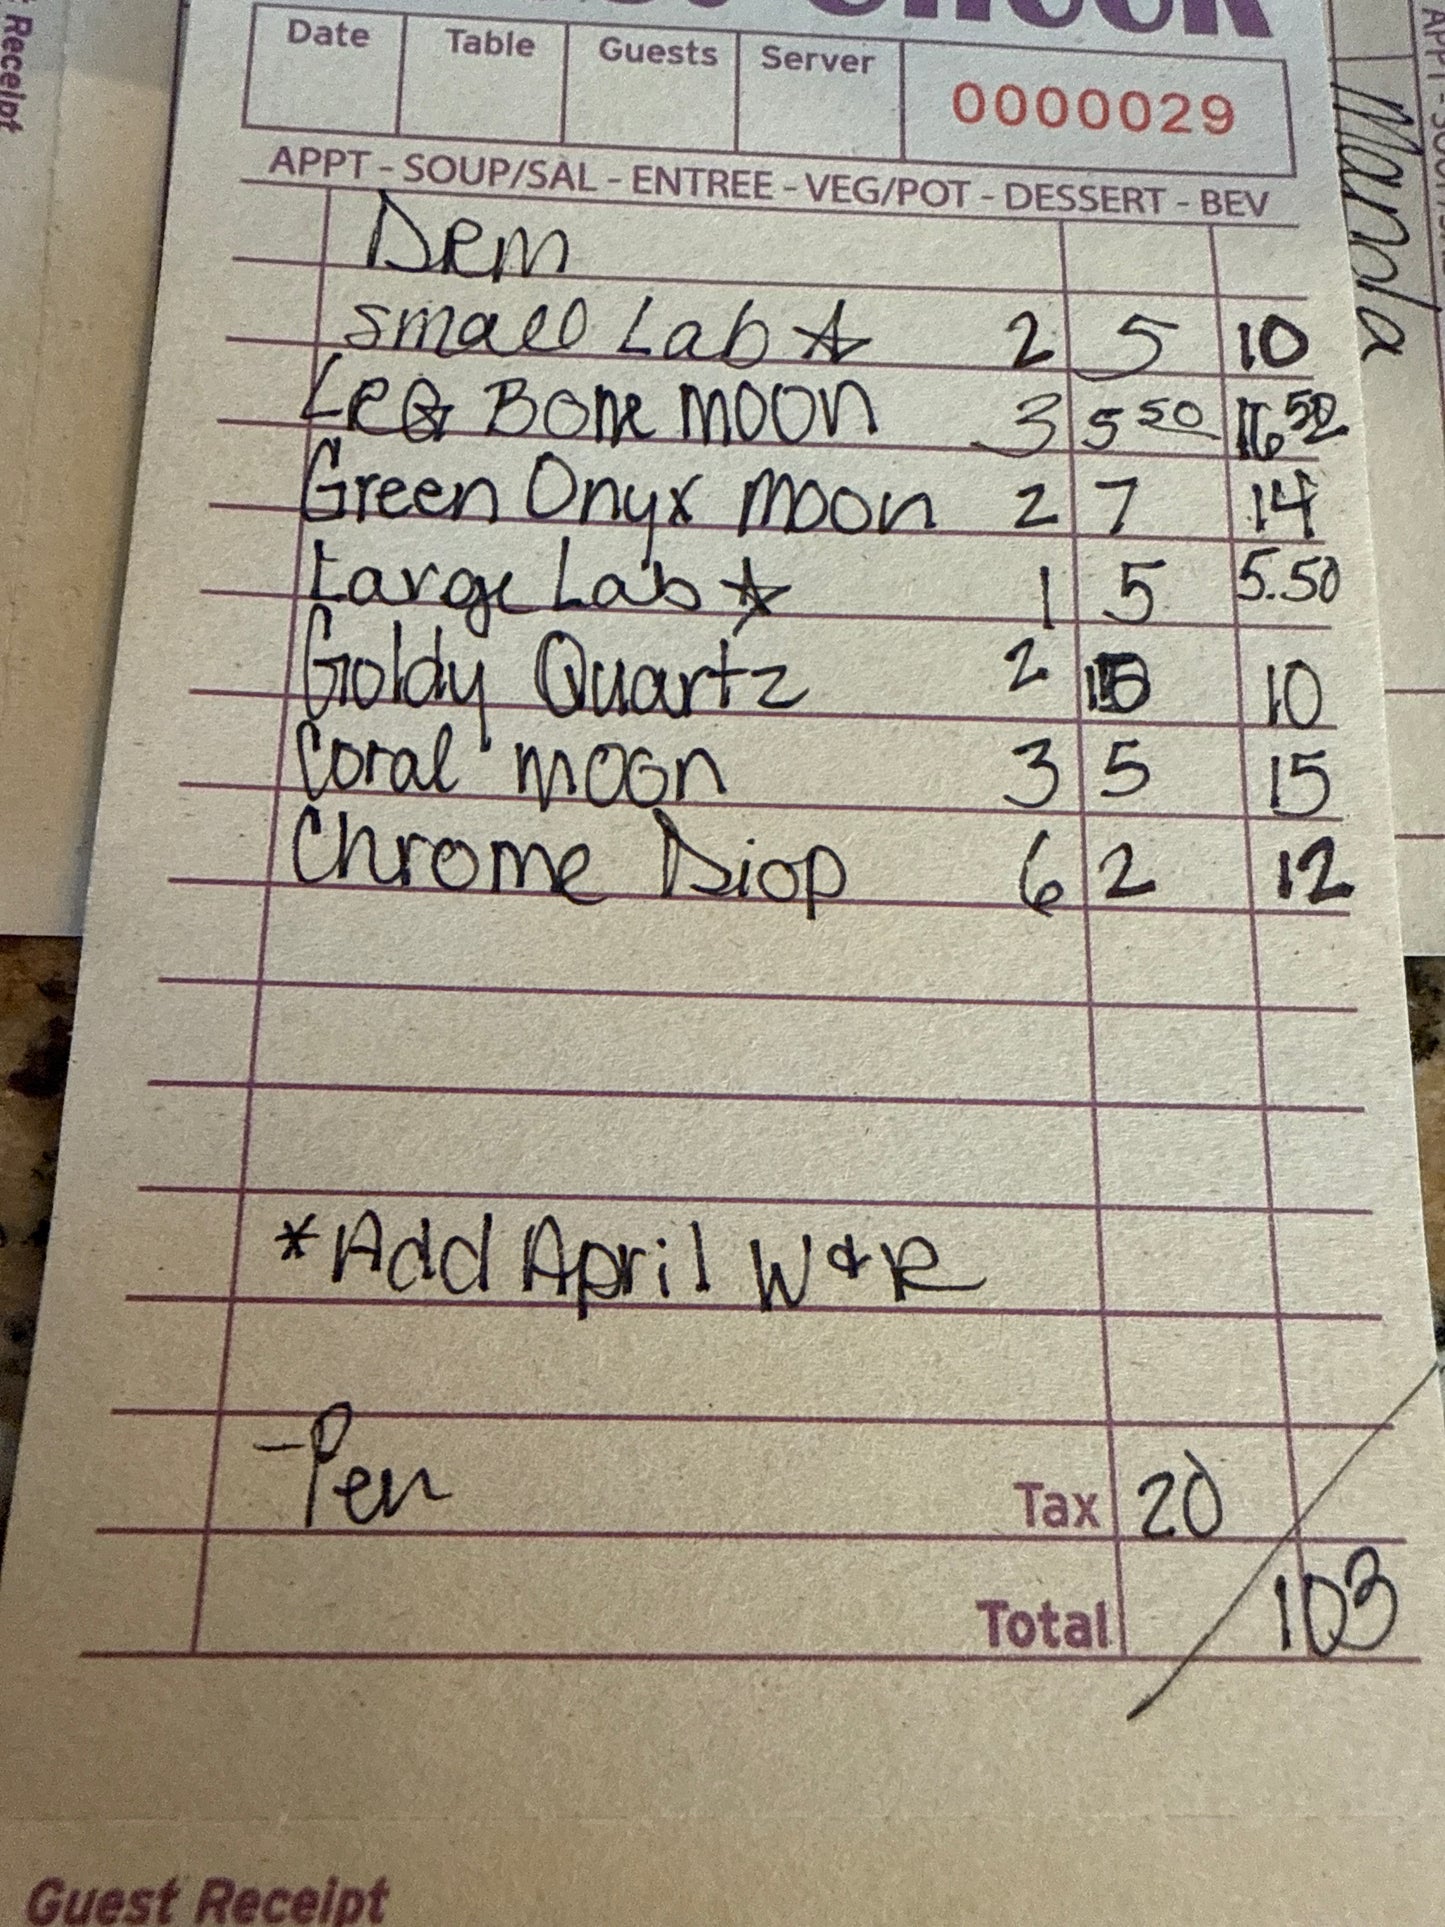 Date Table Guests Server 0000029
APPT - SOUP/SAL - ENTREE - VEG/POT - DESSERT - BEV
Drm
small Lab ☆ 2 5 10
Bone moon 3 5 50 16 50
Green Onyx moon 2 7 14
Large Lab ☆ 1 5 5.50
Goldy Quartz 2 10
Coral moon 3 5 15
Chrome Diop 6 2 12
*Add April W & R
-Pen Tax 20
Total 103
Guest Receipt
Receipt
Manola